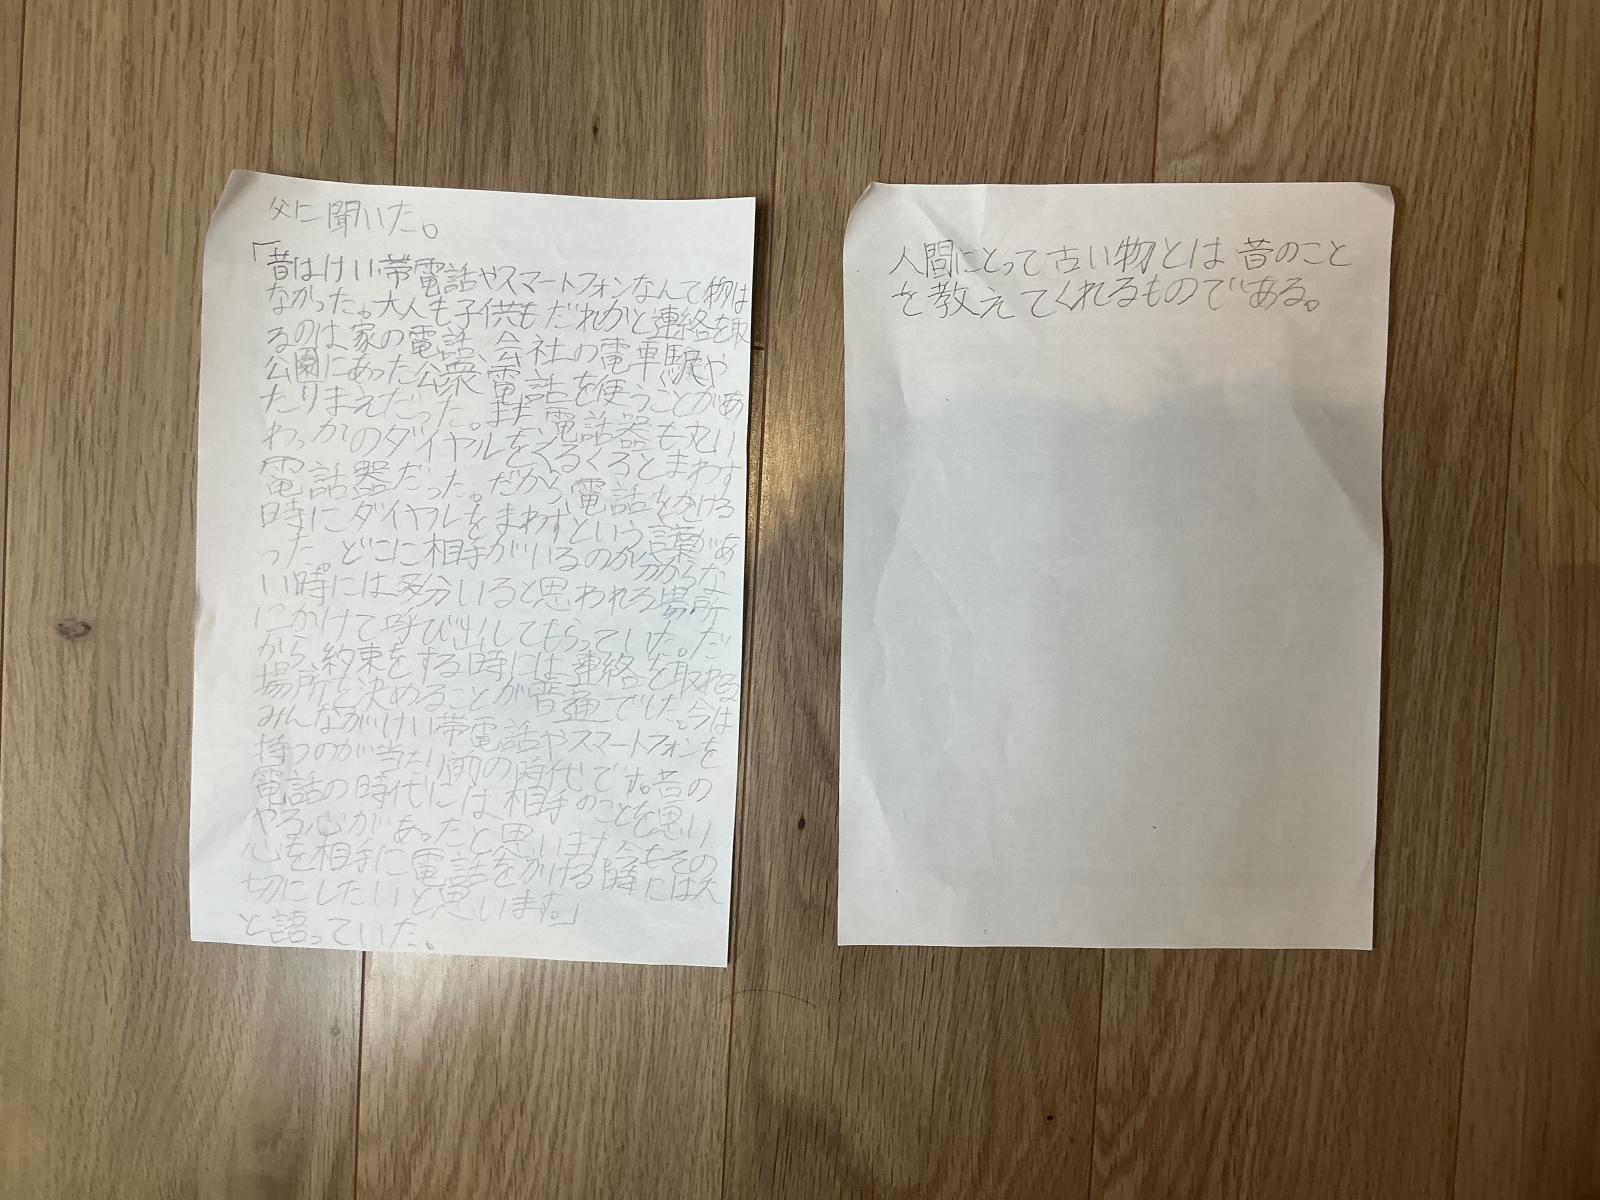 父に聞いた。
「昔はけい帯電話やスマートフォンなんて物は
なかった。大人も子供もだれかと連絡を取
るのは家の電話、会社の電車駅や
公園にあった公衆電話を使うことがあ
たりまえだった。また電話器も丸い
わっかのダイヤルをくるくるとまわす
電話器だった。だから電話をかける
時にダイヤルをまわすという言葉があ
った。どこに相手がいるのか分からな
い時には多分いると思われる場所
にかけて呼び出してもらっていた。だ
から約束をする時には連絡を取れる
場所と決めることが普通でした。今は
みんながけい帯電話やスマートフォンを
持つのが当たり前の時代です。昔の
電話の時代には相手のことを思い
やる心があったと思います今もその
心を相手に電話をかける時には大
切にしたいと思います。」
と語っていた。
人間にとって古い物とは昔のこと
を教えてくれるものである。